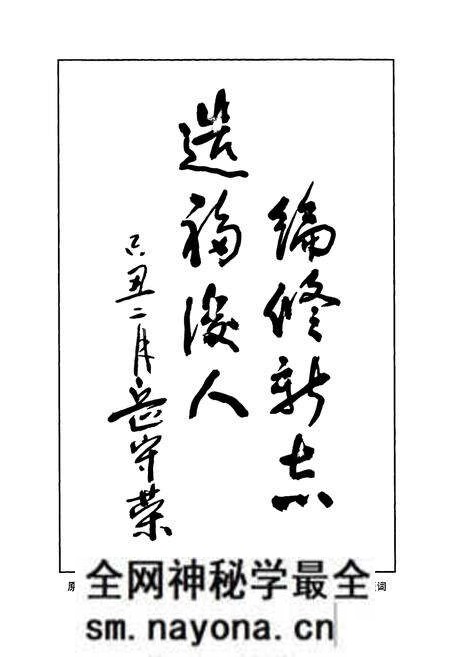 编修新志
造福后人
己丑二月岳守荣
全网神秘学最全
sm.nayona.cn
词